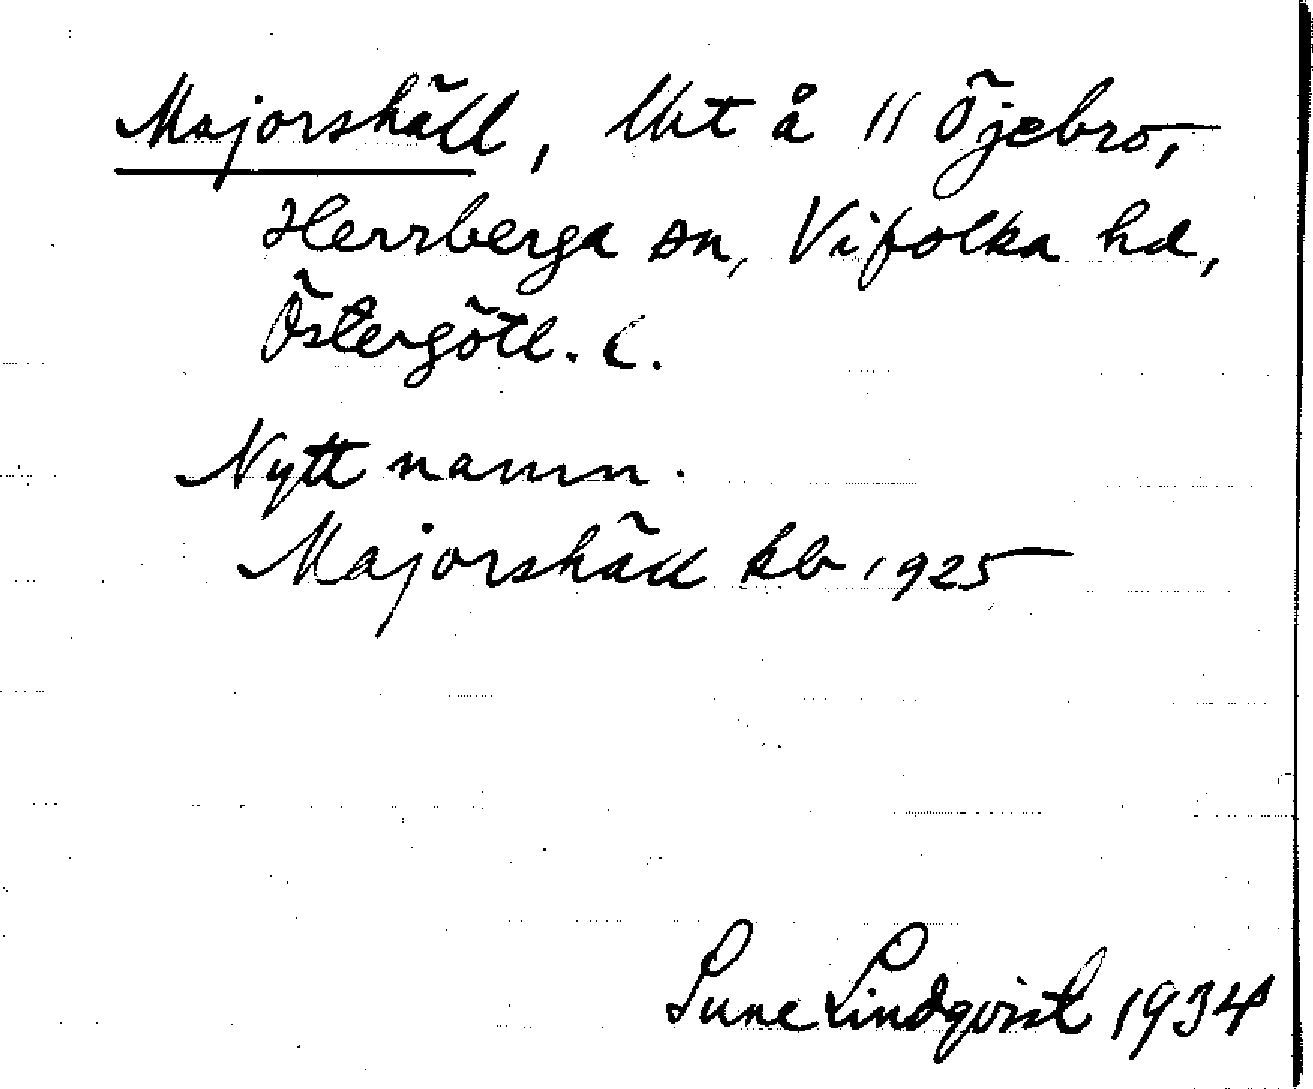 Majorshäll, lht å 11 Öjebro,
Herrberga sn, Vifolka hd,
Östergötl. l.
Nytt namn.
Majorshäll kb 1925
Sune Lindqvist 1934